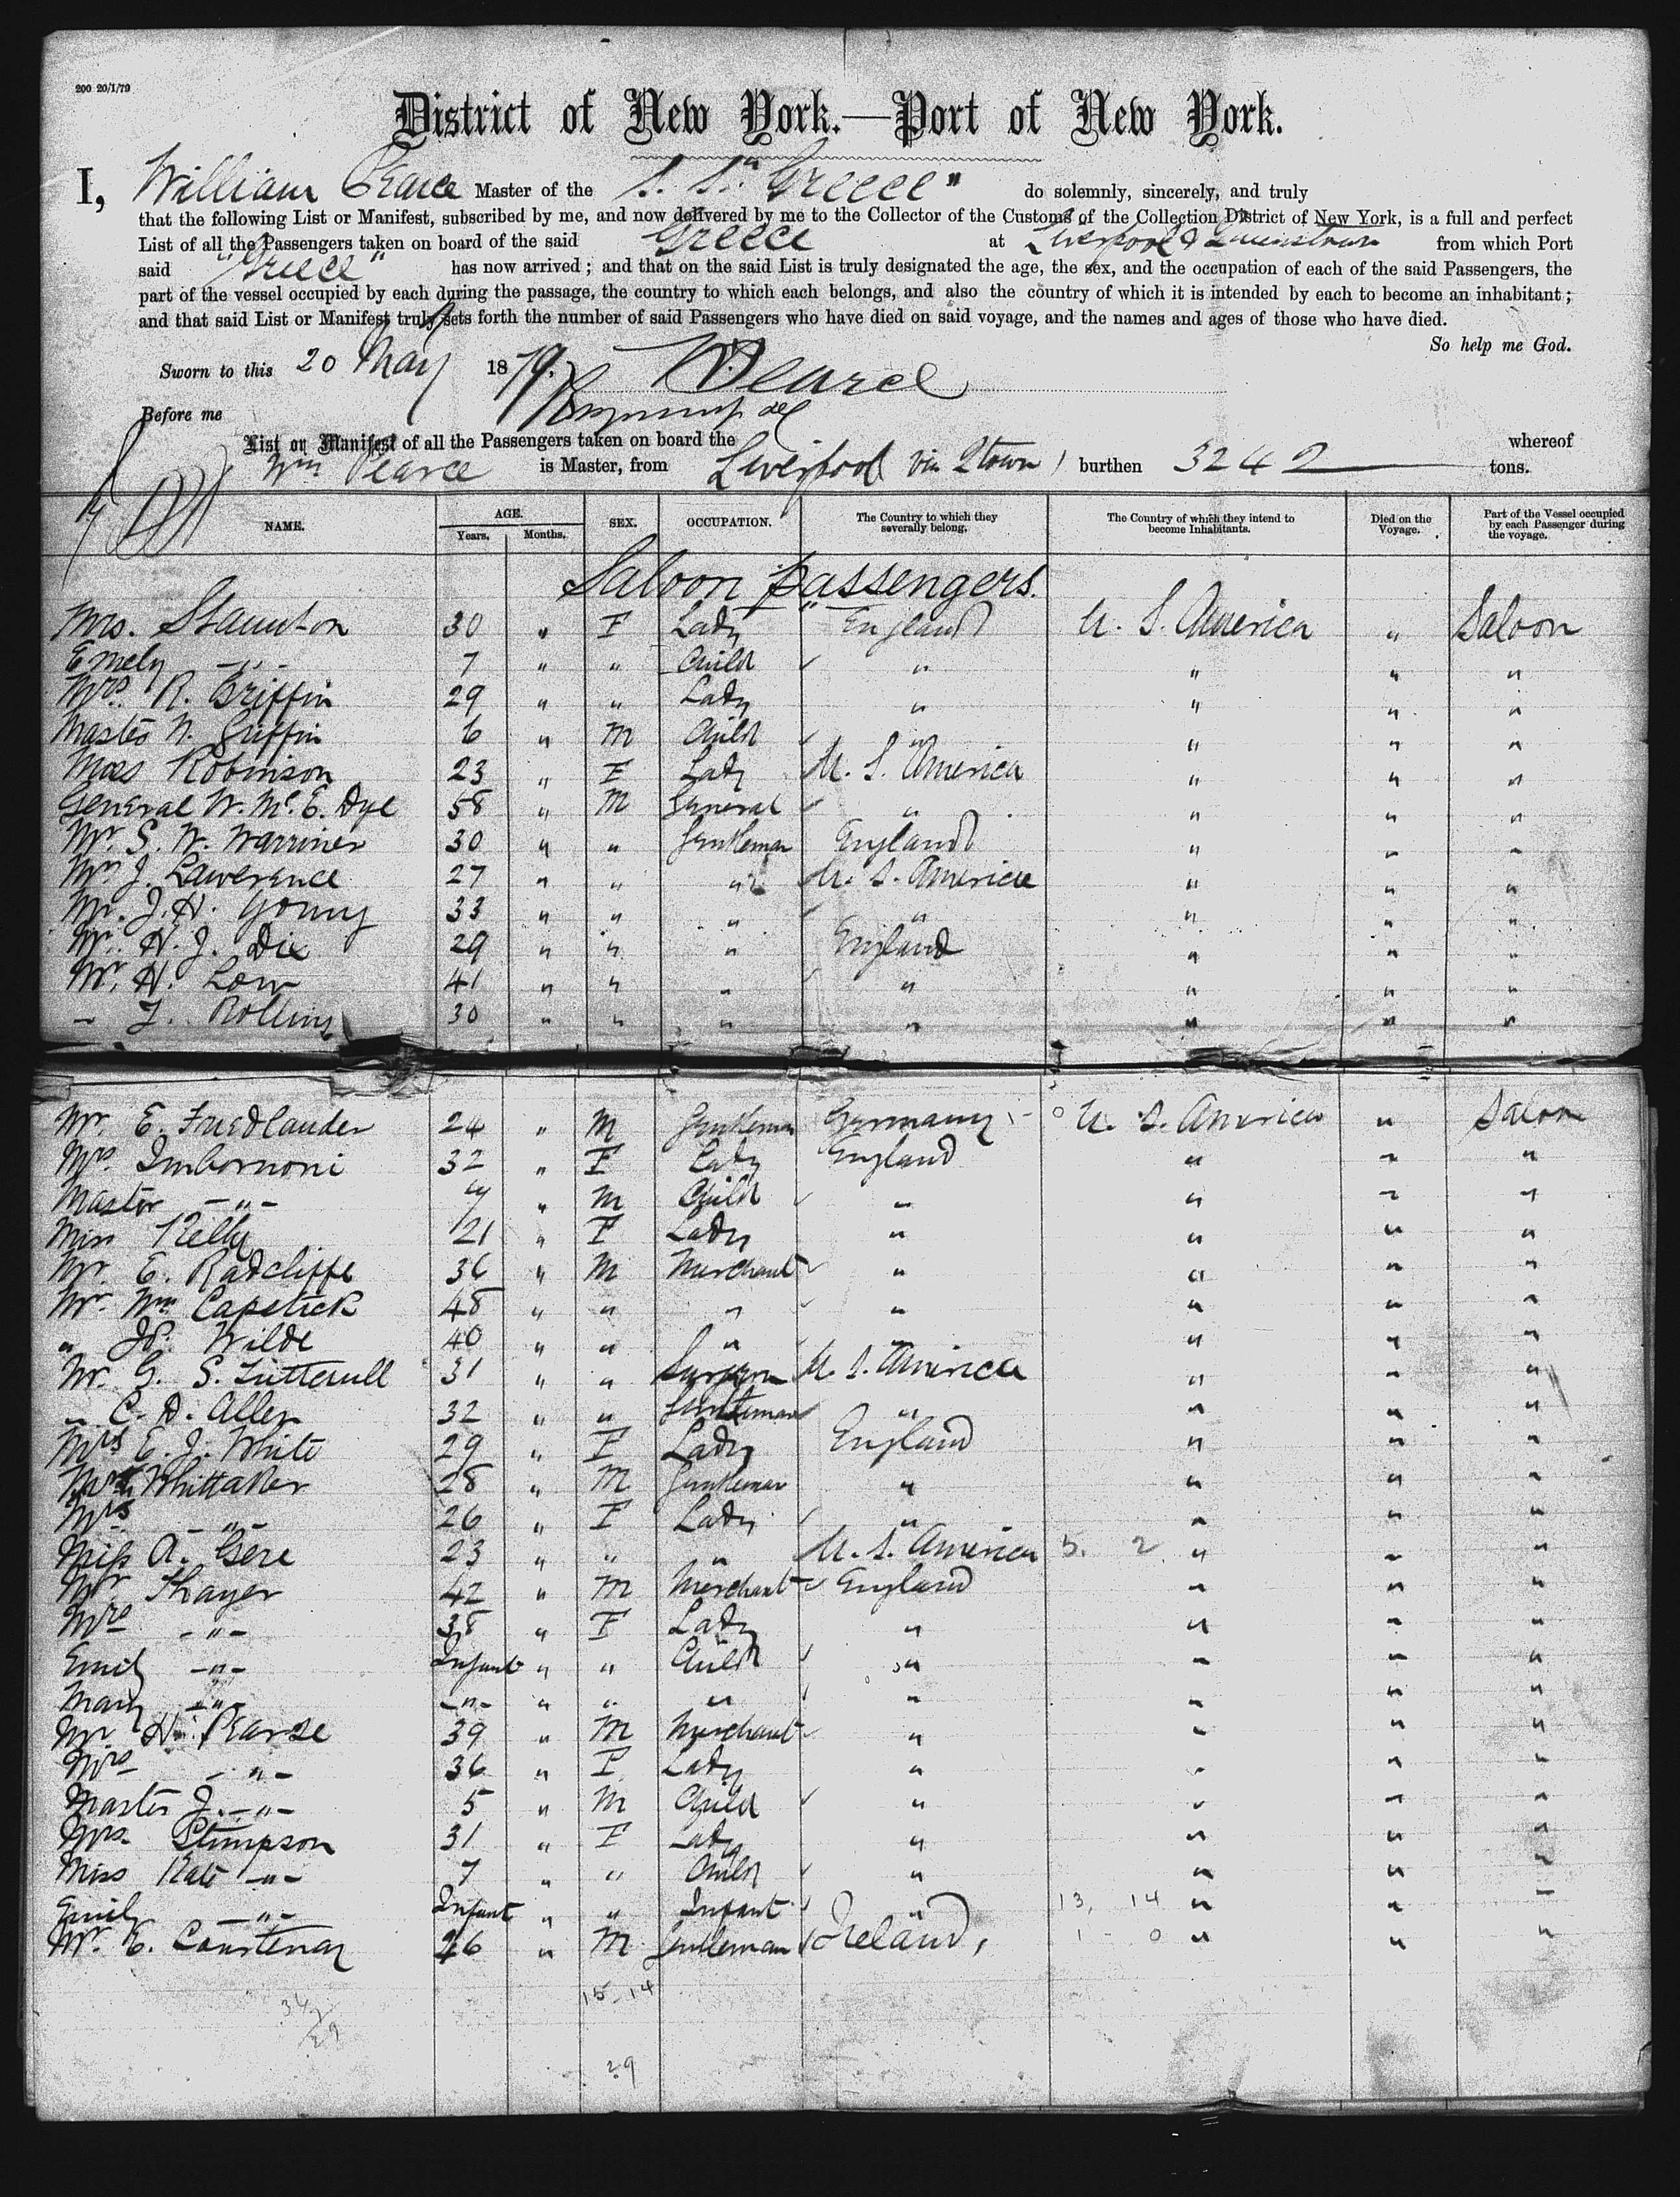 200 20/1/79
District of New York.—Port of New York.
I, William Pearce Master of the S. S. "Greece" do solemnly, sincerely, and truly
that the following List or Manifest, subscribed by me, and now delivered by me to the Collector of the Customs of the Collection District of New York, is a full and perfect
List of all the Passengers taken on board of the said Greece at Liverpool & Queenstown from which Port
said "Greece" has now arrived; and that on the said List is truly designated the age, the sex, and the occupation of each of the said Passengers, the
part of the vessel occupied by each during the passage, the country to which each belongs, and also the country of which it is intended by each to become an inhabitant;
and that said List or Manifest truly sets forth the number of said Passengers who have died on said voyage, and the names and ages of those who have died.
So help me God.
Sworn to this 20 May 1879. W Pearce
Before me
List or Manifest of all the Passengers taken on board the whereof
Wm Pearce is Master, from Liverpool via Qtown, burthen 3242 tons.
NAME. AGE. Years. Months. SEX. OCCUPATION. The Country to which they severally belong. The Country of which they intend to become Inhabitants. Died on the Voyage. Part of the Vessel occupied by each Passenger during the voyage.
Saloon passengers.
Mrs. Staunton 30 " F Lady England U. S. America " Saloon
Emely -"- 7 " " Child " " " "
Mrs. R. Griffin 29 " " Lady " " " "
Master N. Griffin 6 " M Child " " " "
Miss Robinson 23 " F Lady U. S. America " " "
General W. Mc. E. Dye 58 " M General " " " "
Mr. S. W. Warriner 30 " " Gentleman England " " "
Mr. J. Lawerence 27 " " " U. S. America " " "
Mr. J. H. Young 33 " " " " " " "
Mr. H. J. Dix 29 " " " England " " "
Mr. H. Low 41 " " " " " " "
" J. Rollins 30 " " " " " " "
Mr. E. Friedlander 24 " M Gentleman Germany U. S. America " Saloon
Mrs. Imbornoni 32 " F Lady England " " "
Master -"- 4 " M Child " " " "
Miss Kelly 21 " F Lady " " " "
Mr. E. Radcliffe 36 " M Merchant " " " "
Mr. Wm Capstick 48 " " " " " " "
" Jos. Wilde 40 " " " " " " "
Mr. G. S. Lutterull 31 " " Surgeon U. S. America " " "
" C. D. Allen 32 " " Gentleman " " " "
Mrs E. J. White 29 " F Lady England " " "
Mr. Whittaker 28 " M Gentleman " " " "
Mrs -"- 26 " F Lady " " " "
Miss A. Gere 23 " " " U. S. America 5. 2 " " "
Mr Thayer 42 " M Merchant England " " "
Mrs -"- 38 " F Lady " " " "
Emily -"- Infant " " Child " " " "
Mary -"- -"- " " " " " " "
Mr H. Pearse 39 " M Merchant " " " "
Mrs -"- 36 " F Lady " " " "
Master J. -"- 5 " M Child " " " "
Mrs. Stimpson 31 " F Lady " " " "
Miss Kate -"- 7 " " Child " " " "
Emily -"- Infant " " Infant " 13, 14 " " "
Mr. E. Courtenay 26 " M Gentleman Ireland, 1 - 0 " " "
15-14
34/29
29